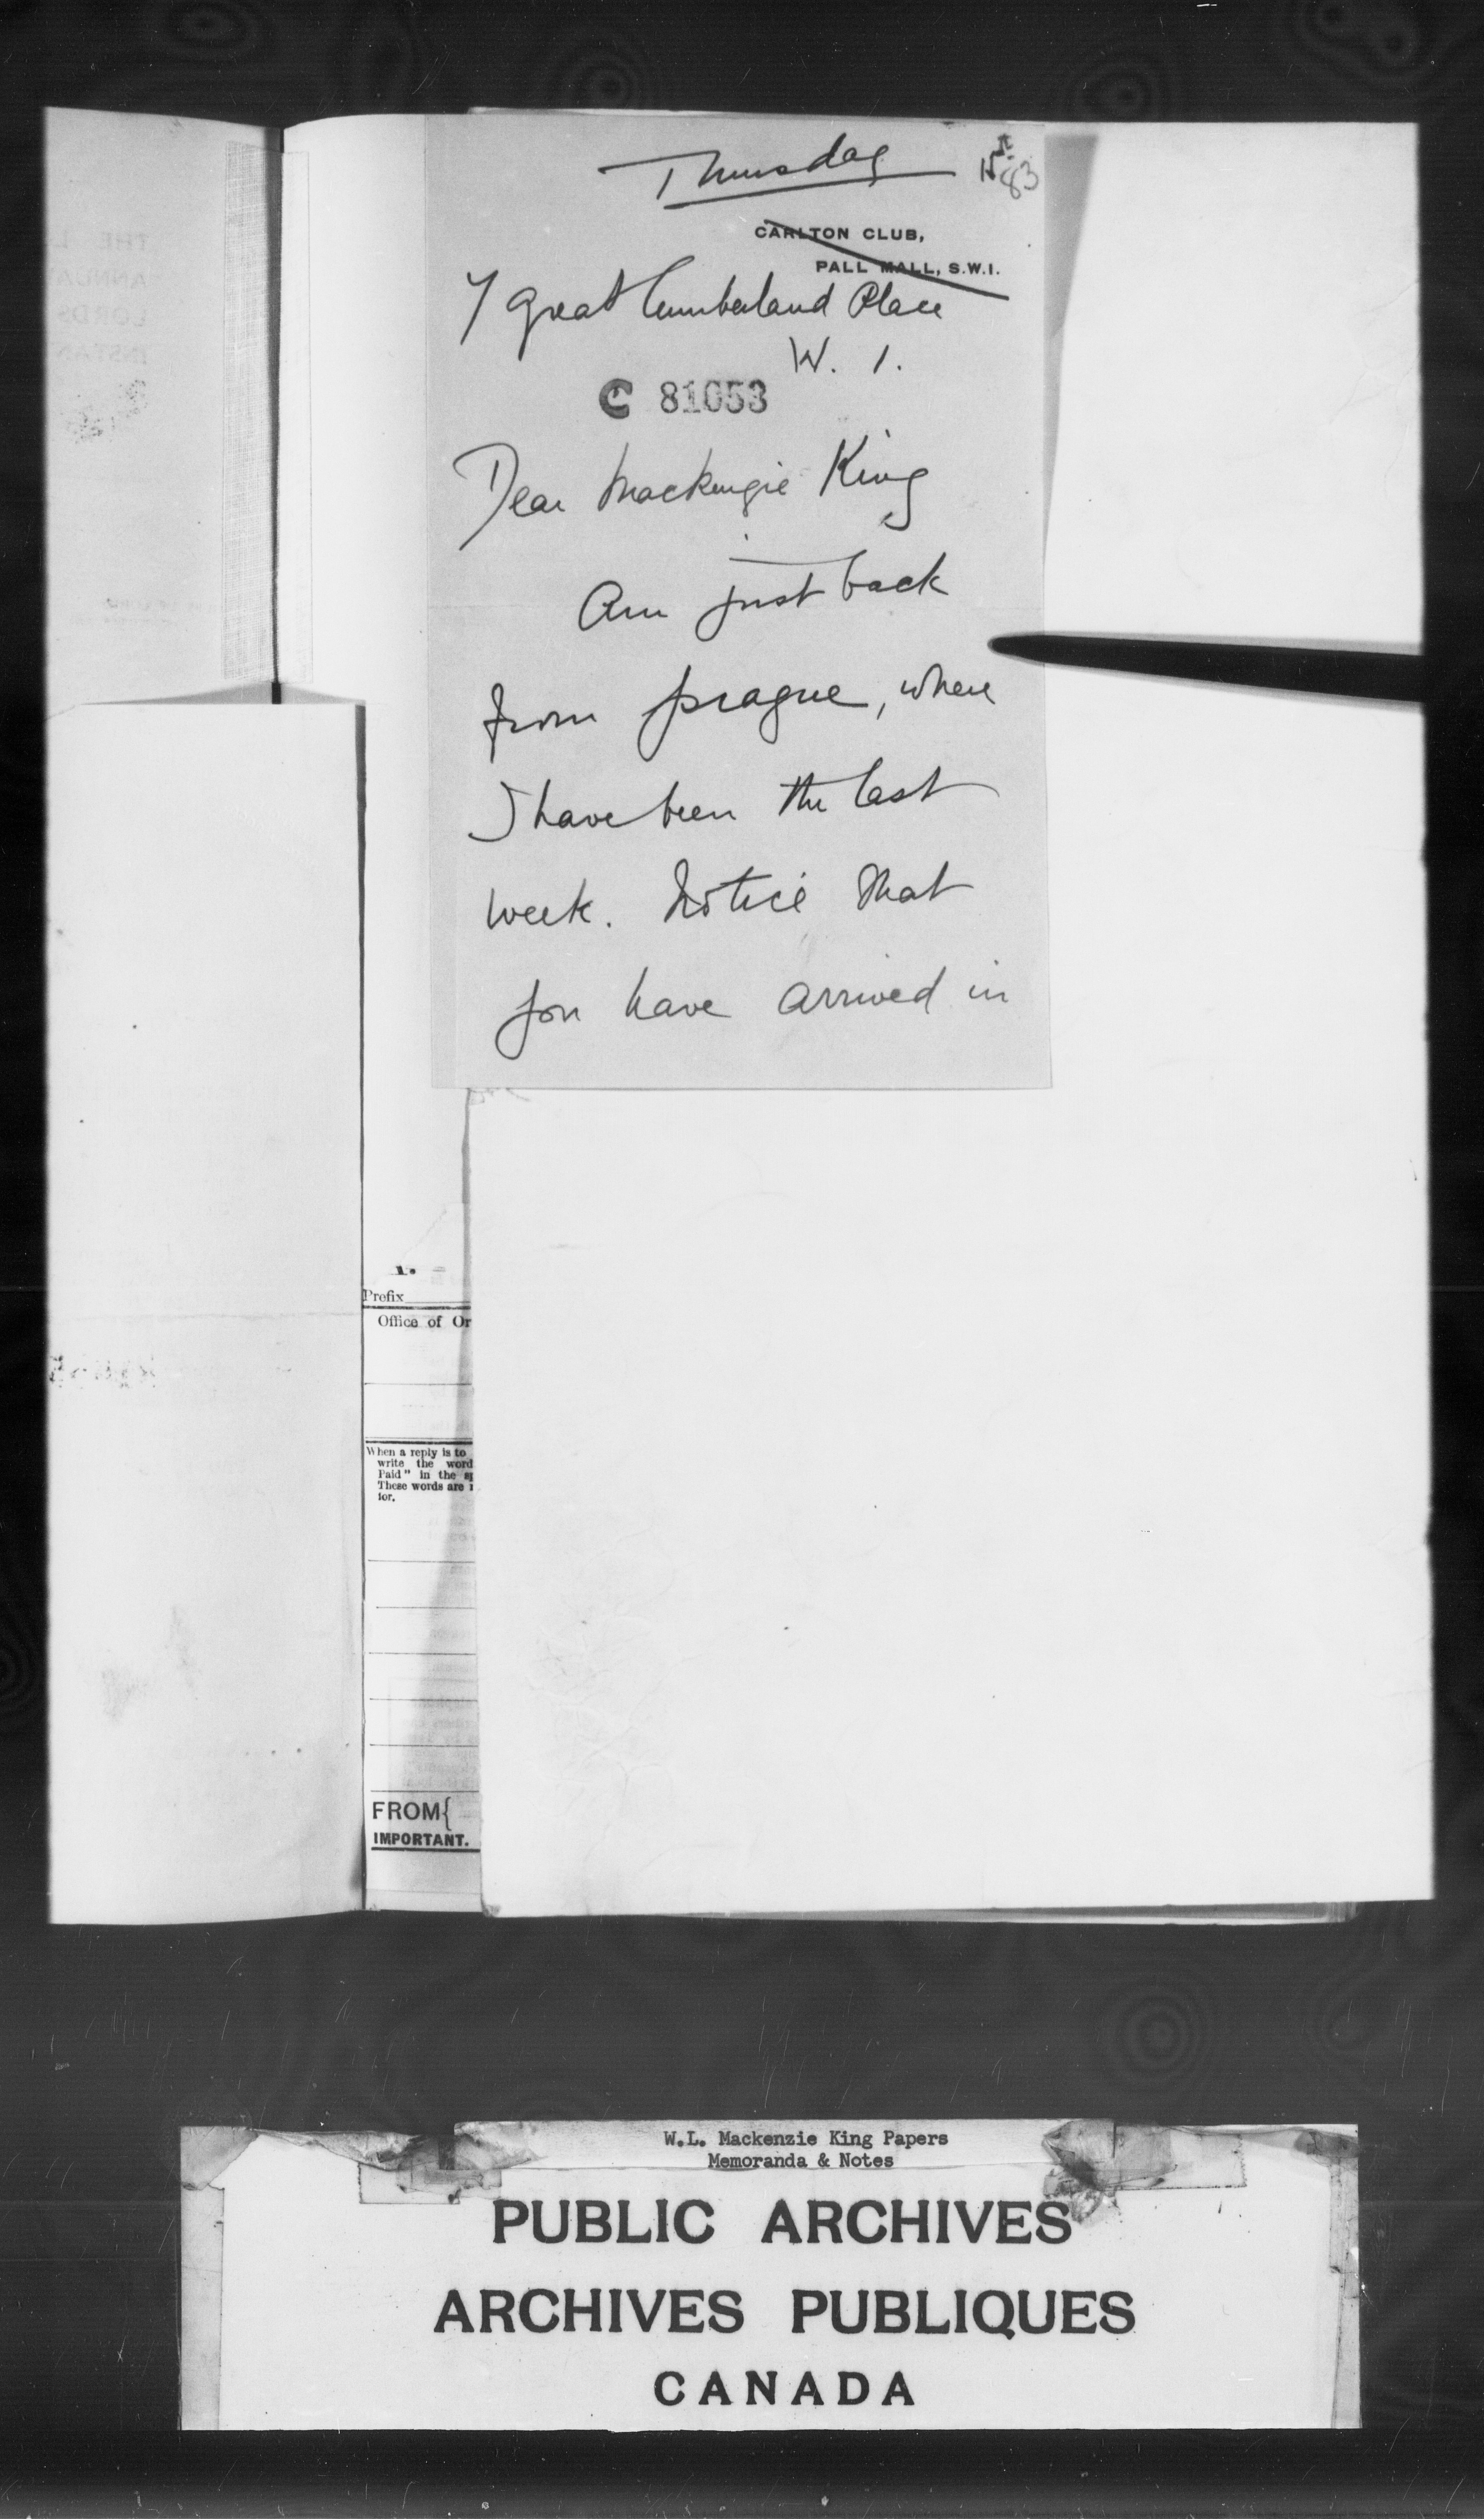 Thursday
83
CARLTON CLUB,
PALL MALL, S.W.1.
7 Great Cumberland Place
W. 1.
C 81053
Dear Mackenzie King
Am just back
from Prague, where
I have been the last
week. Notice that
you have arrived in
1.
Prefix
Office of Or
When a reply is to
write the word
Paid" in the sp
These words are
for.
FROM{
IMPORTANT.
W.L. Mackenzie King Papers
Memoranda & Notes
PUBLIC ARCHIVES
ARCHIVES PUBLIQUES
CANADA